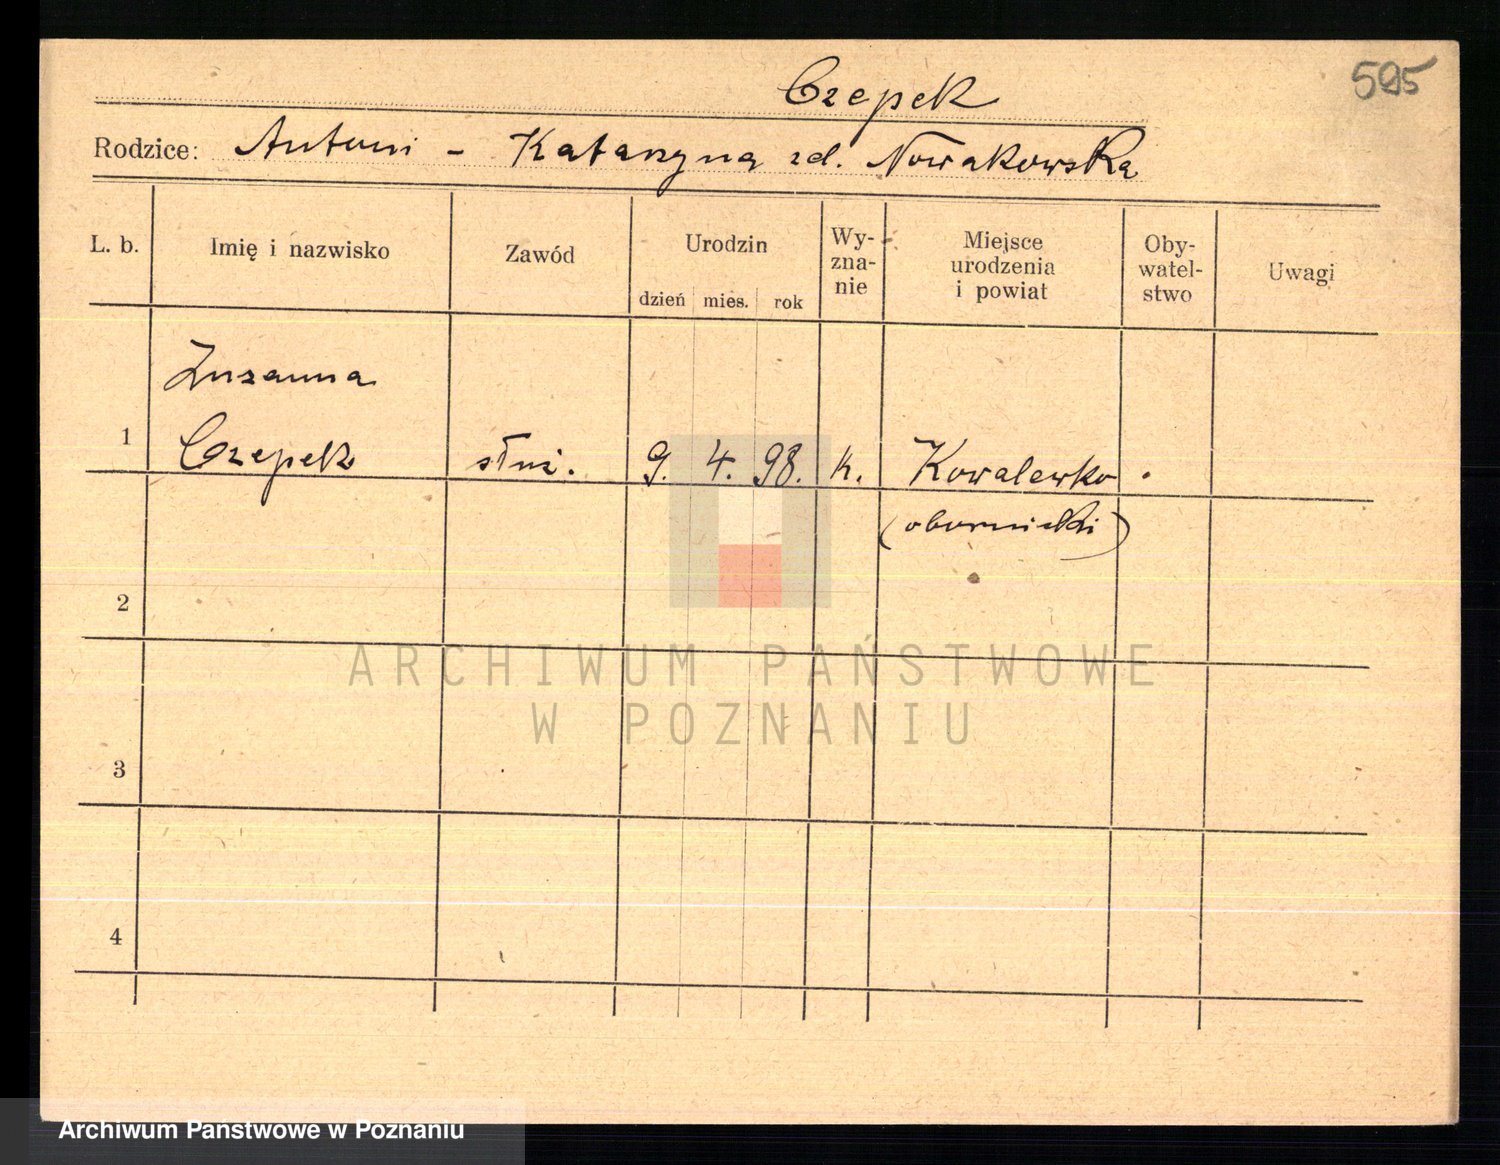 595
Czepek
Rodzice: Antoni - Katarzyna zd. Nowakowska
L. b.
Imię i nazwisko
Zawód
Urodzin
dzień mies. rok
Wy-
zna-
nie
Miejsce
urodzenia
i powiat
Oby-
watel-
stwo
Uwagi
Zuzanna
1 Czepek służ. 9. 4. 98. k. Kowalewko
(obornicki)
2
3
4
ARCHIWUM PAŃSTWOWE
W POZNANIU
Archiwum Państwowe w Poznaniu